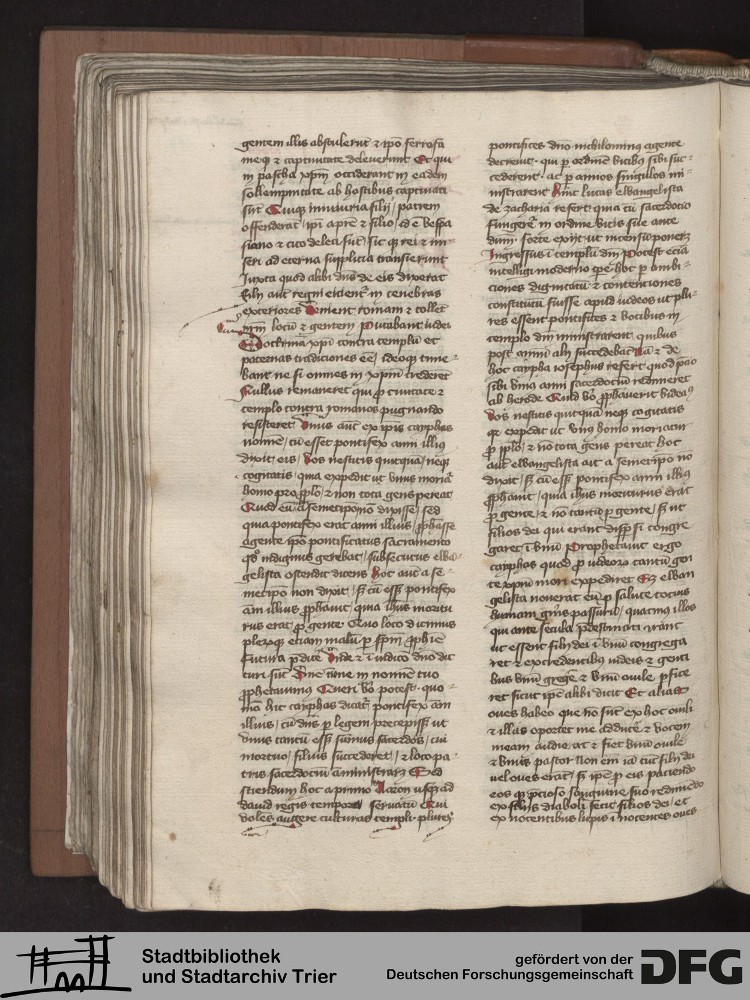 gentem illis abstulerunt et ipso ferro fa
meque et captivitate deleverunt Et qui
in pascha xpm occiderant in eadem
sollempnitate ab hostibus captivati
sunt
offenderat ipi a patre et filio, id est vespa
siano et tito deleti sunt sic
seri ad eterna supplicia transierunt
Juxta quod alibi dns de eis dixerat
filii aut regni eicient in tenebras
exteriores Venient romani et tollent
nrm locum et gentem Putabant iudei
Doctrina xpi contra templum et
paternas tradiciones ee, ideoque time
bant ne si omnes in xpm crederet
Nullus remaneret qui p civitate et
templo contra romanos pugnando
resisteret Unus aut ex ipis cayphas
nomine, cu esset pontifex anni illius
dixit eis, vos nescitis quitqua, neque
cogitatis, quia expedit ut unus moriat
homo pro pplo, et non tota gens pereat
Quod eu a semetipso no dixisse, sed
quia pontifex erat anni illius, pphasse
agente ipo pontificatus sacramento
qd indignus gerebat, subsecutus ewa
gelista ostendit dicens Hoc aut a se
metipo non dixit, s cu esset pontifex
ani illius pphavit, quia ihus moritu
rus erat p gente Quo loco dicimus
plerosque etiam malum p spm pphie
futura pdicere Unde et i iudicio dno dic
turi sunt Dne dne in nomine tuo
pphetavimus Queri vo potest, quo
mo hic cayphas dicat pontifex ani
illius, cu dns p legem precepisset ut
unus tantum esset summus sacerdos, cui
mortuo, filius succederet, et loco pa
tris sacerdocium aministraret Sed
sciendum hoc a primo Aaron usque ad
david regis tempora servatum Qui
volens augere culturas templi plures
pontifices dno nichilominus agente
decrevit, qui p ordine vicibus sibi suc
cederent ac p annos singulos mi
nistrarent Sicut lucas ewangelista
de zacharia refert, quia cum sacerdotio
fungeret in ordine vicis sue ante
dum, sorte exiit, ut incensum poneret
Ingressus i templu dni Potest ecia
intelligi moderno tpe hoc p ambi
ciones dignitatum et contenciones
constitutum fuisse apud iudeos ut plu
res essent pontifices et vicibus in
templo dni ministrarent, quibus
post annu alii succedebat Un et de
hoc caypha iosephus refert quod pao
sibi unius anni sacerdocium redimeret
ab herode Quid vo pphaverit videam
Vos nescitis quitqua neque cogitatis
qr expedit ut unus homo moriatur
p pplo, et no tota gens pereat hoc
aut ewangelista ait a semetipo no
dixit, s cu esset pontifex anni illius
pphavit, quia ihus moriturus erat
p gente, et no tantum p gente, s ut
filios dei qui erant dispsi congre
garet i unu Prophetavit ergo
cayphas quod p iudeorum tantum gen
te xpm mori expediret Sed ewan
gelista noverat eum p salute tocius
humani genis passurum, quatinus illos
qui ante secula predestinati erant
ut essent filii dei i unu congrega
ret et ex credentibus iudeis et genti
bus unu grege et unu ovile pfice
ret sicut ipe alibi dicit Et alias
oves habeo que no sunt ex hoc ovili
et illas oportet me adducere et vocem
meam audiet et fiet unu ovile
et unus pastor Non em ia tunc filii dei
vel oves erat s ipe p eis paciendo
eos p precioso sanguine suo redimendo
ex filiis diaboli fecit filios dei, et
ex nocentibus lupis i nocentes oves
Stadtbibliothek
und Stadtarchiv Trier
gefördert von der
Deutschen Forschungsgemeinschaft
DFG